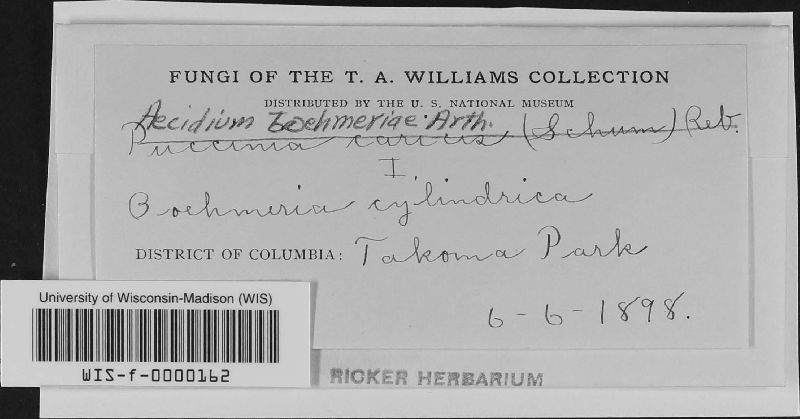 FUNGI OF THE T. A. WILLIAMS COLLECTION
DISTRIBUTED BY THE U. S. NATIONAL MUSEUM
Aecidium Boehmeriae Arth.
Puccinia caricis (Schum) Reb.
I.
Boehmeria cylindrica
DISTRICT OF COLUMBIA: Takoma Park
6-6-1898.
University of Wisconsin-Madison (WIS)
WIS-f-0000162
RICKER HERBARIUM